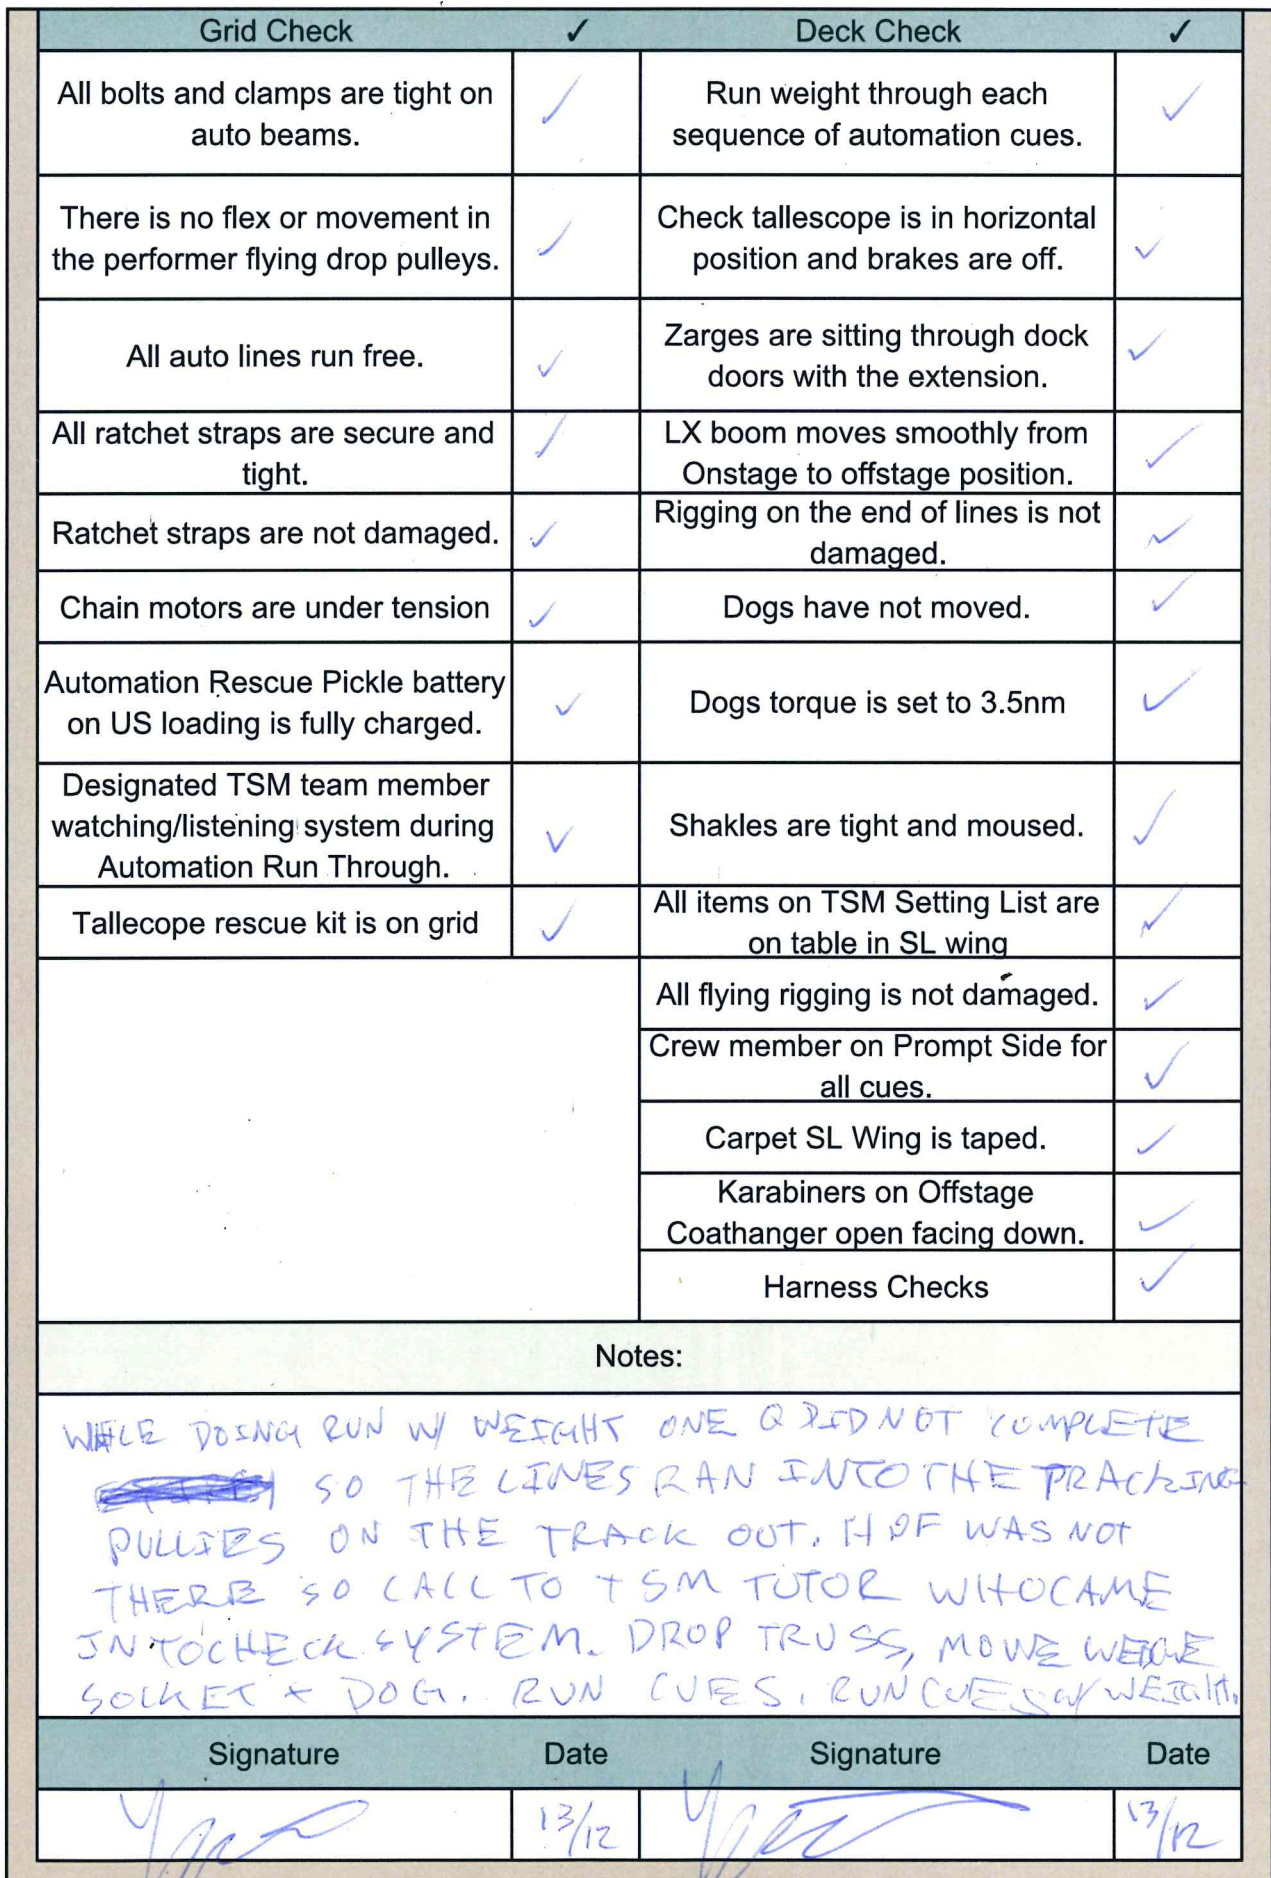 Grid Check ✓ Deck Check ✓
All bolts and clamps are tight on
auto beams.
Run weight through each
sequence of automation cues.
There is no flex or movement in
the performer flying drop pulleys.
Check tallescope is in horizontal
position and brakes are off.
All auto lines run free.
Zarges are sitting through dock
doors with the extension.
All ratchet straps are secure and
tight.
LX boom moves smoothly from
Onstage to offstage position.
Ratchet straps are not damaged.
Rigging on the end of lines is not
damaged.
Chain motors are under tension
Dogs have not moved.
Automation Rescue Pickle battery
on US loading is fully charged.
Dogs torque is set to 3.5nm
Designated TSM team member
watching/listening system during
Automation Run Through.
Shakles are tight and moused.
Tallecope rescue kit is on grid
All items on TSM Setting List are
on table in SL wing
All flying rigging is not damaged.
Crew member on Prompt Side for
all cues.
Carpet SL Wing is taped.
Karabiners on Offstage
Coathanger open facing down.
Harness Checks
Notes:
WHILE DOING RUN W/ WEIGHT ONE Q DID NOT COMPLETE
SO THE LINES RAN INTO THE TRACKING
PULLIES ON THE TRACK OUT. HOF WAS NOT
THERE SO CALL TO TSM TUTOR WHO CAME
IN TO CHECK SYSTEM. DROP TRUSS, MOVE WEDGE
SOCKET + DOG. RUN CUES. RUN CUES W/ WEIGHT.
Signature Date Signature Date
13/12 13/12